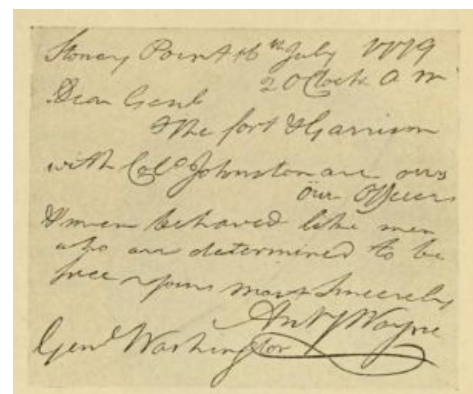 Stoney Point 16th July 1779
2 O Clock A M
Dear Genl
The fort & Garrison
with Colo Johnston are ours
Our Officers
& men behaved like men
who are determined to be
free yours most Sincerely
Anty Wayne
Genl Washington